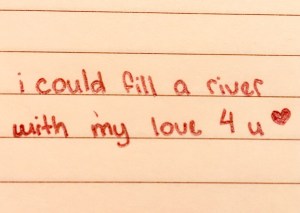 i could fill a river
with my love 4 u ♥